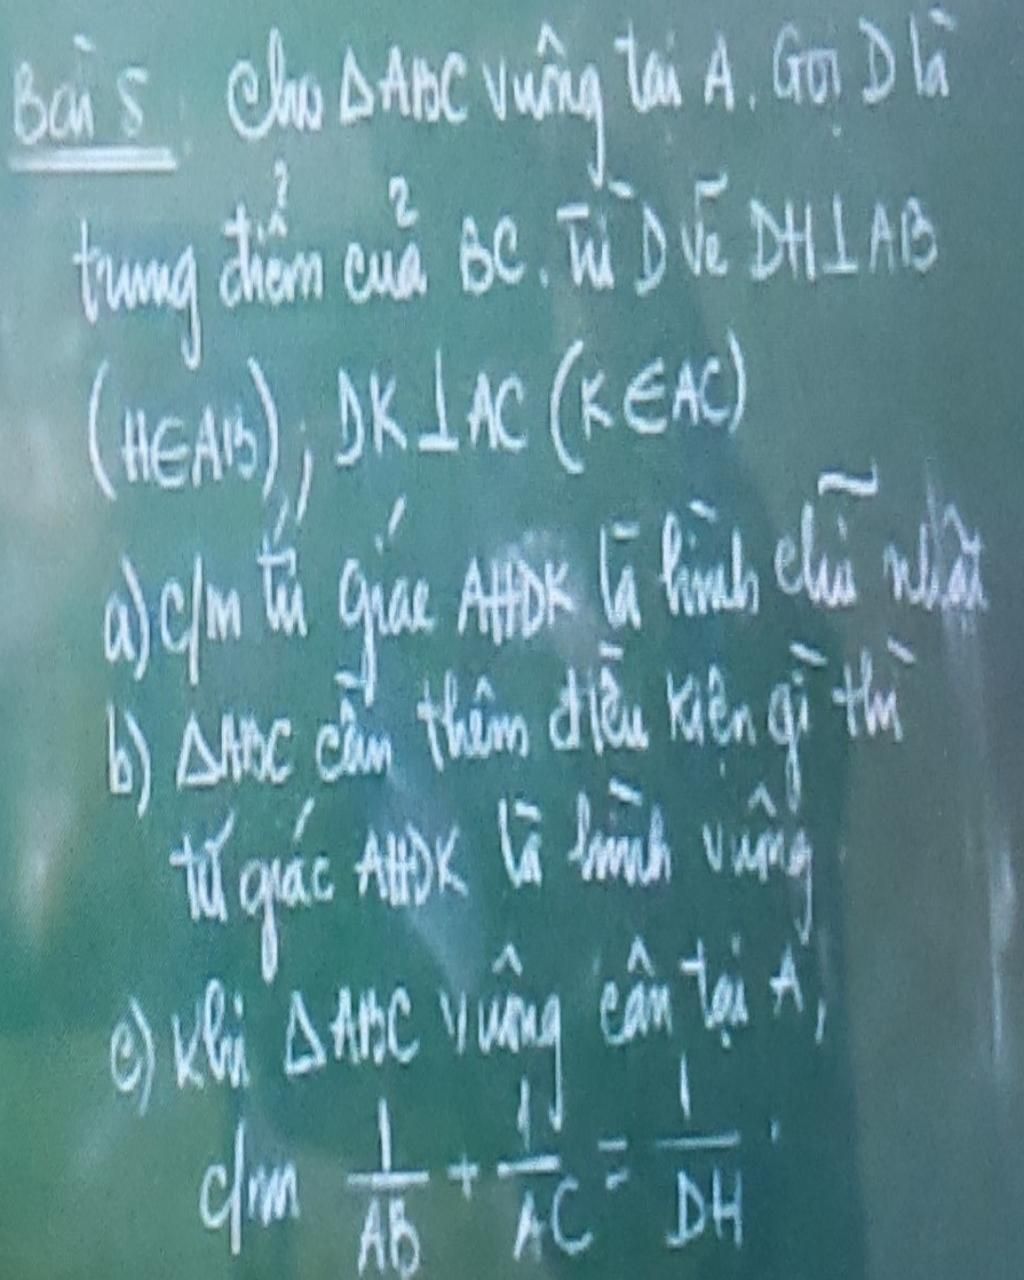 Bài 5. Cho ΔABC vuông tại A. Gọi D là
trung điểm của BC. Từ D vẽ DH⊥AB
(H∈AB); DK⊥AC (K∈AC)
a) c/m tứ giác AHDK là hình chữ nhật
b) ΔABC cần thêm điều kiện gì thì
tứ giác AHDK là hình vuông
c) Khi ΔABC vuông cân tại A,
c/m 1/AB + 1/AC = 1/DH.